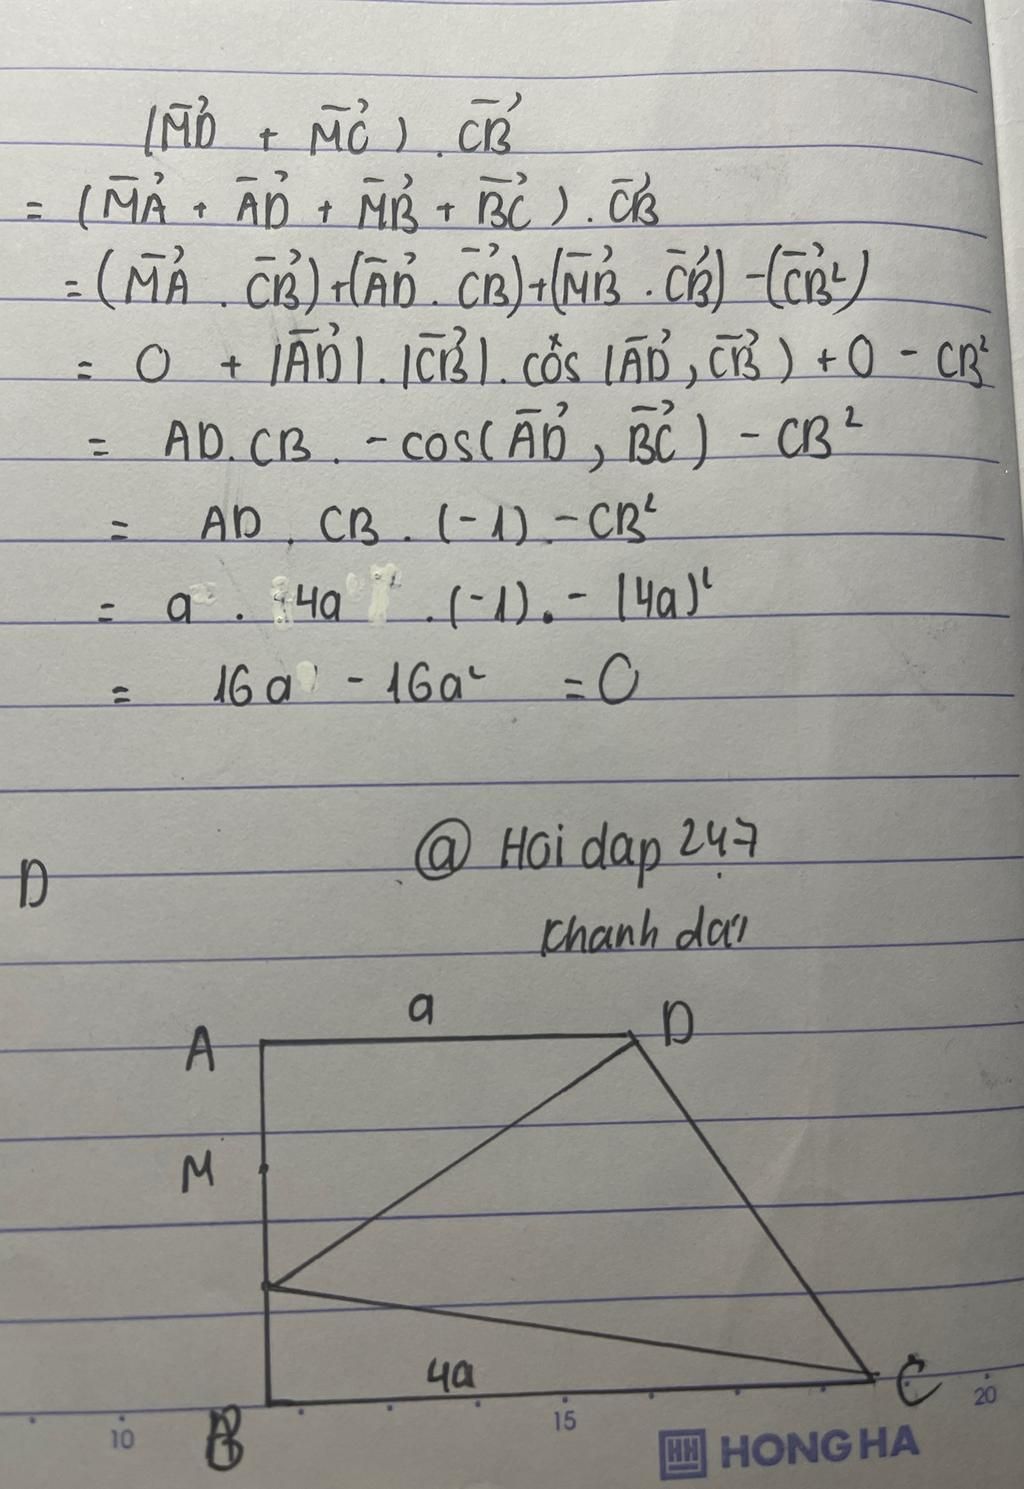 (MD⃗ + MC⃗) . CB⃗
= (MA⃗ + AD⃗ + MB⃗ + BC⃗) . CB⃗
= (MA⃗ . CB⃗) + (AD⃗ . CB⃗) + (MB⃗ . CB⃗) - (CB⃗²)
= 0 + |AD⃗| . |CB⃗| . cos (AD⃗, CB⃗) + 0 - CB²
= AD . CB . - cos (AD⃗, BC⃗) - CB²
= AD . CB . (-1) . - CB²
= a . 4a . (-1) . - (4a)²
= 16a - 16a² = 0
@ Hoi dap 247
D
Khanh
a
A D
M
4a
B C
10 15 20
HH HONG HA